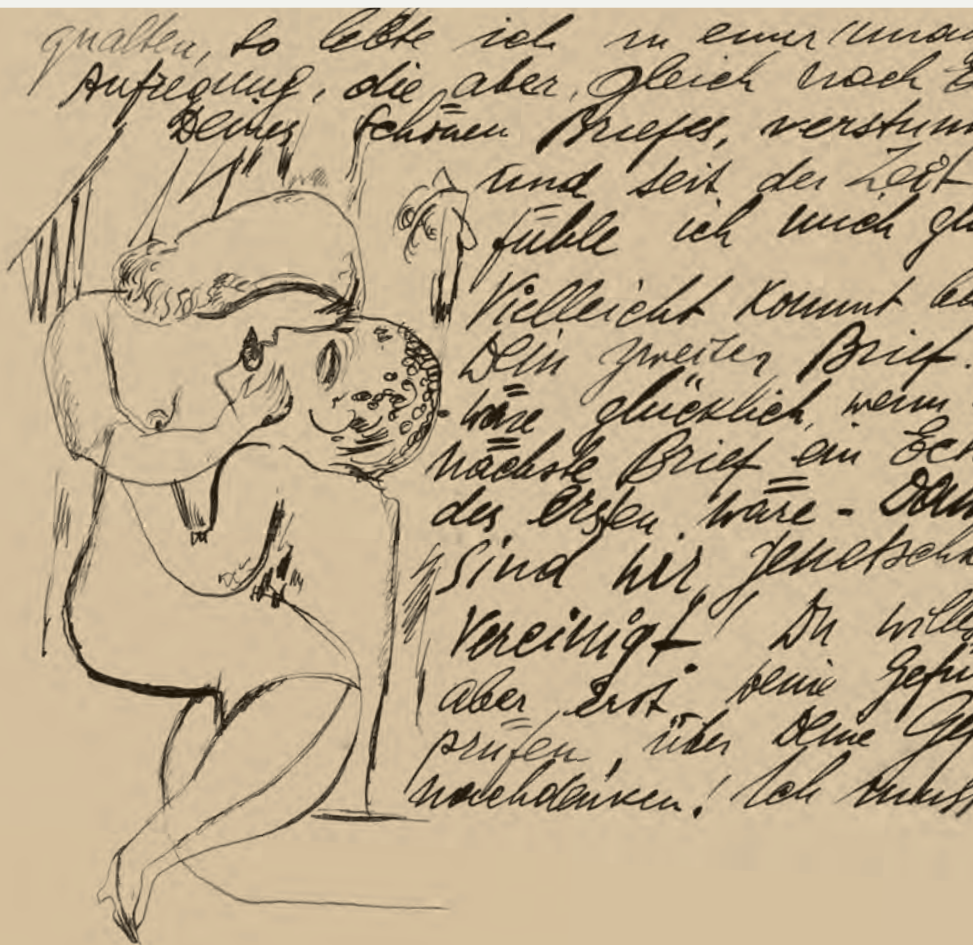 qualten, so lebte ich in einer
Aufregung, die aber, gleich nach E
Deines schönen Briefes, verstum
und seit der Zeit
fühle ich mich
Vielleicht kommt
Dein zweiter Brief.
wäre glücklich, wenn
nächste Brief ein Ech
des ersten wäre - Dan
sind wir,
Vereinigt! Du wills
aber erst Deine Gefü
prüfen, über Deine Ge
nachdenken! Ich muss